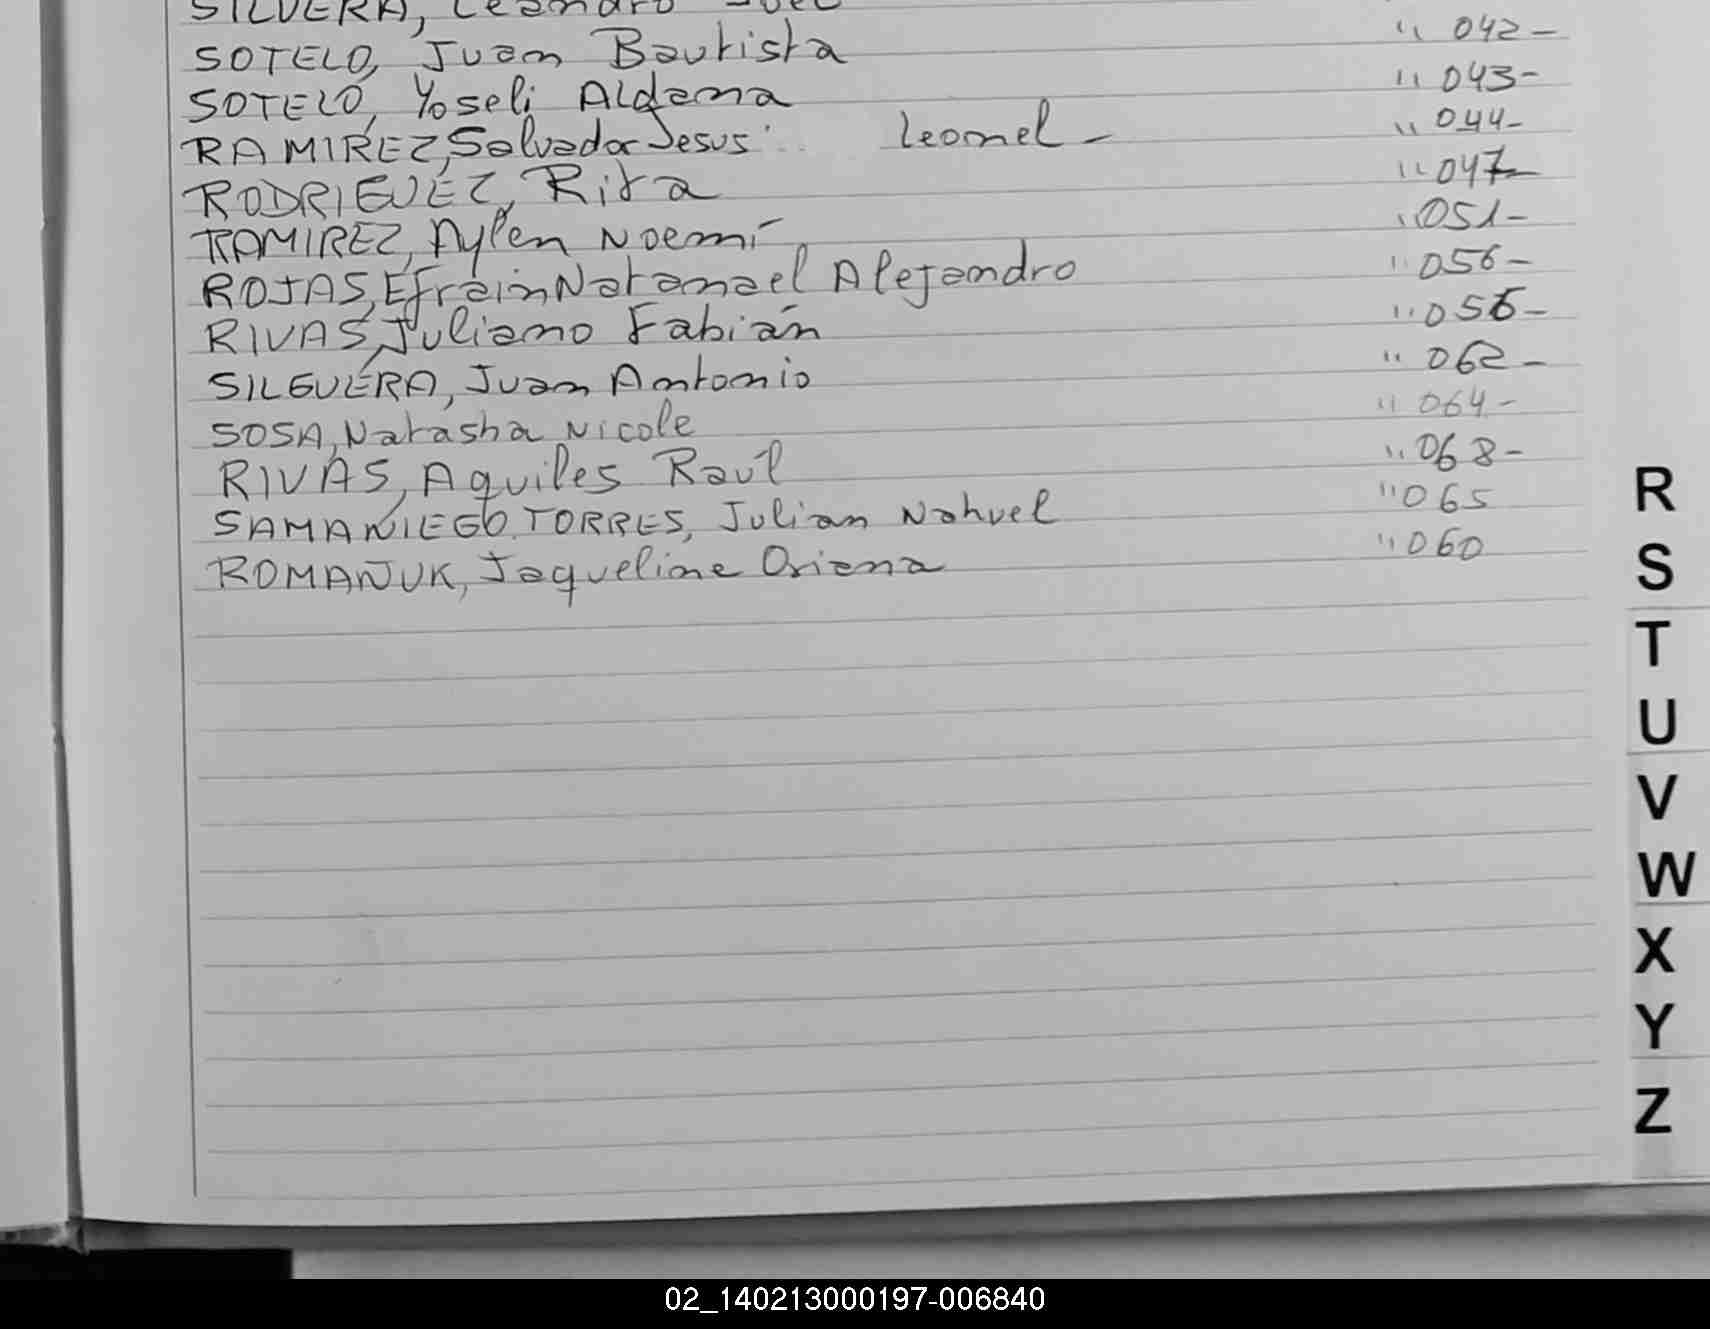 SILVERA, Leandro Joel
SOTELO, Juan Bautista " 042-
SOTELO, Yoseli Aldana " 043-
RAMIREZ, Salvador Jesus Leonel - " 044-
RODRIGUEZ, Rita " 047-
RAMIREZ, Aylen Noemí " 051-
ROJAS, Efrain Natanael Alejandro " 056-
RIVAS, Juliano Fabián " 056-
SILGUERA, Juan Antonio " 062-
SOSA, Natasha Nicole " 064-
RIVAS, Aquiles Raúl " 068-
SAMANIEGO TORRES, Julian Nahuel " 065
ROMANJUK, Jaqueline Oriana " 060
R
S
T
U
V
W
X
Y
Z
02_140213000197-006840